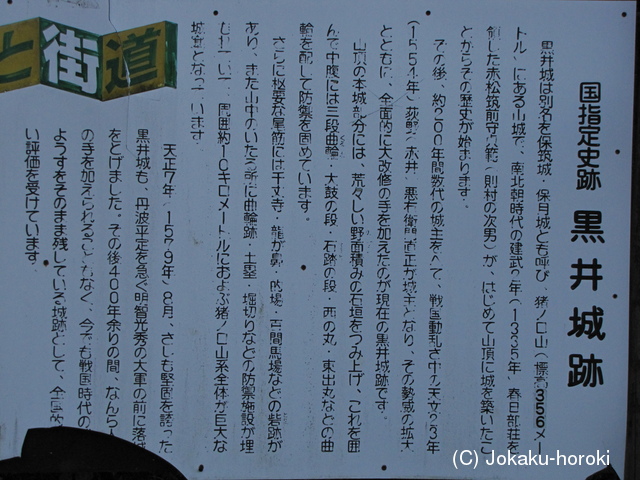 国指定史跡 黒井城跡
黒井城は別名を保筑城、保月城とも呼び、猪ノ口山(標高356メー
トル)にある山城で、南北朝時代の建武2年(1335年)春日部荘を
領した赤松筑前守貞範(則村の次男)が、はじめて山頂に城を築いたこ
とからその歴史が始まります。
その後、約200年間数代の城主をへて、戦国動乱さ中の天文23年
(1554年)荻野(赤井)悪右衛門直正が城主となり、その勢威の拡大
とともに、全面的に大改修の手を加えたのが現在の黒井城跡です。
山頂の本城部分には、荒々しい野面積みの石垣をつみ上げ、これを囲
んで中腹には三段曲輪・太鼓の段・石踏の段・西の丸・東出丸などの曲
輪を配して防禦を固めています。
さらに枝葉な尾筋には千丈寺・龍が鼻・的場・百間馬場などの砦跡が
あり、また山中のいたる所に曲輪跡・土塁・堀切りなどの防禦施設が埋
もれていて、周囲約10キロメートルにおよぶ猪ノ口山系全体が巨大な
城塞となっています。
天正7年(1579年)8月、さしも堅固を誇った
黒井城も、丹波平定を急ぐ明智光秀の大軍の前に落城
をとげました。その後400年余りの間、なんら
の手を加えられることもなく、今でも戦国時代の
ようすをそのまま残している城跡として、全国的
い評価を受けています。
と街道
(C) Jokaku-horoki